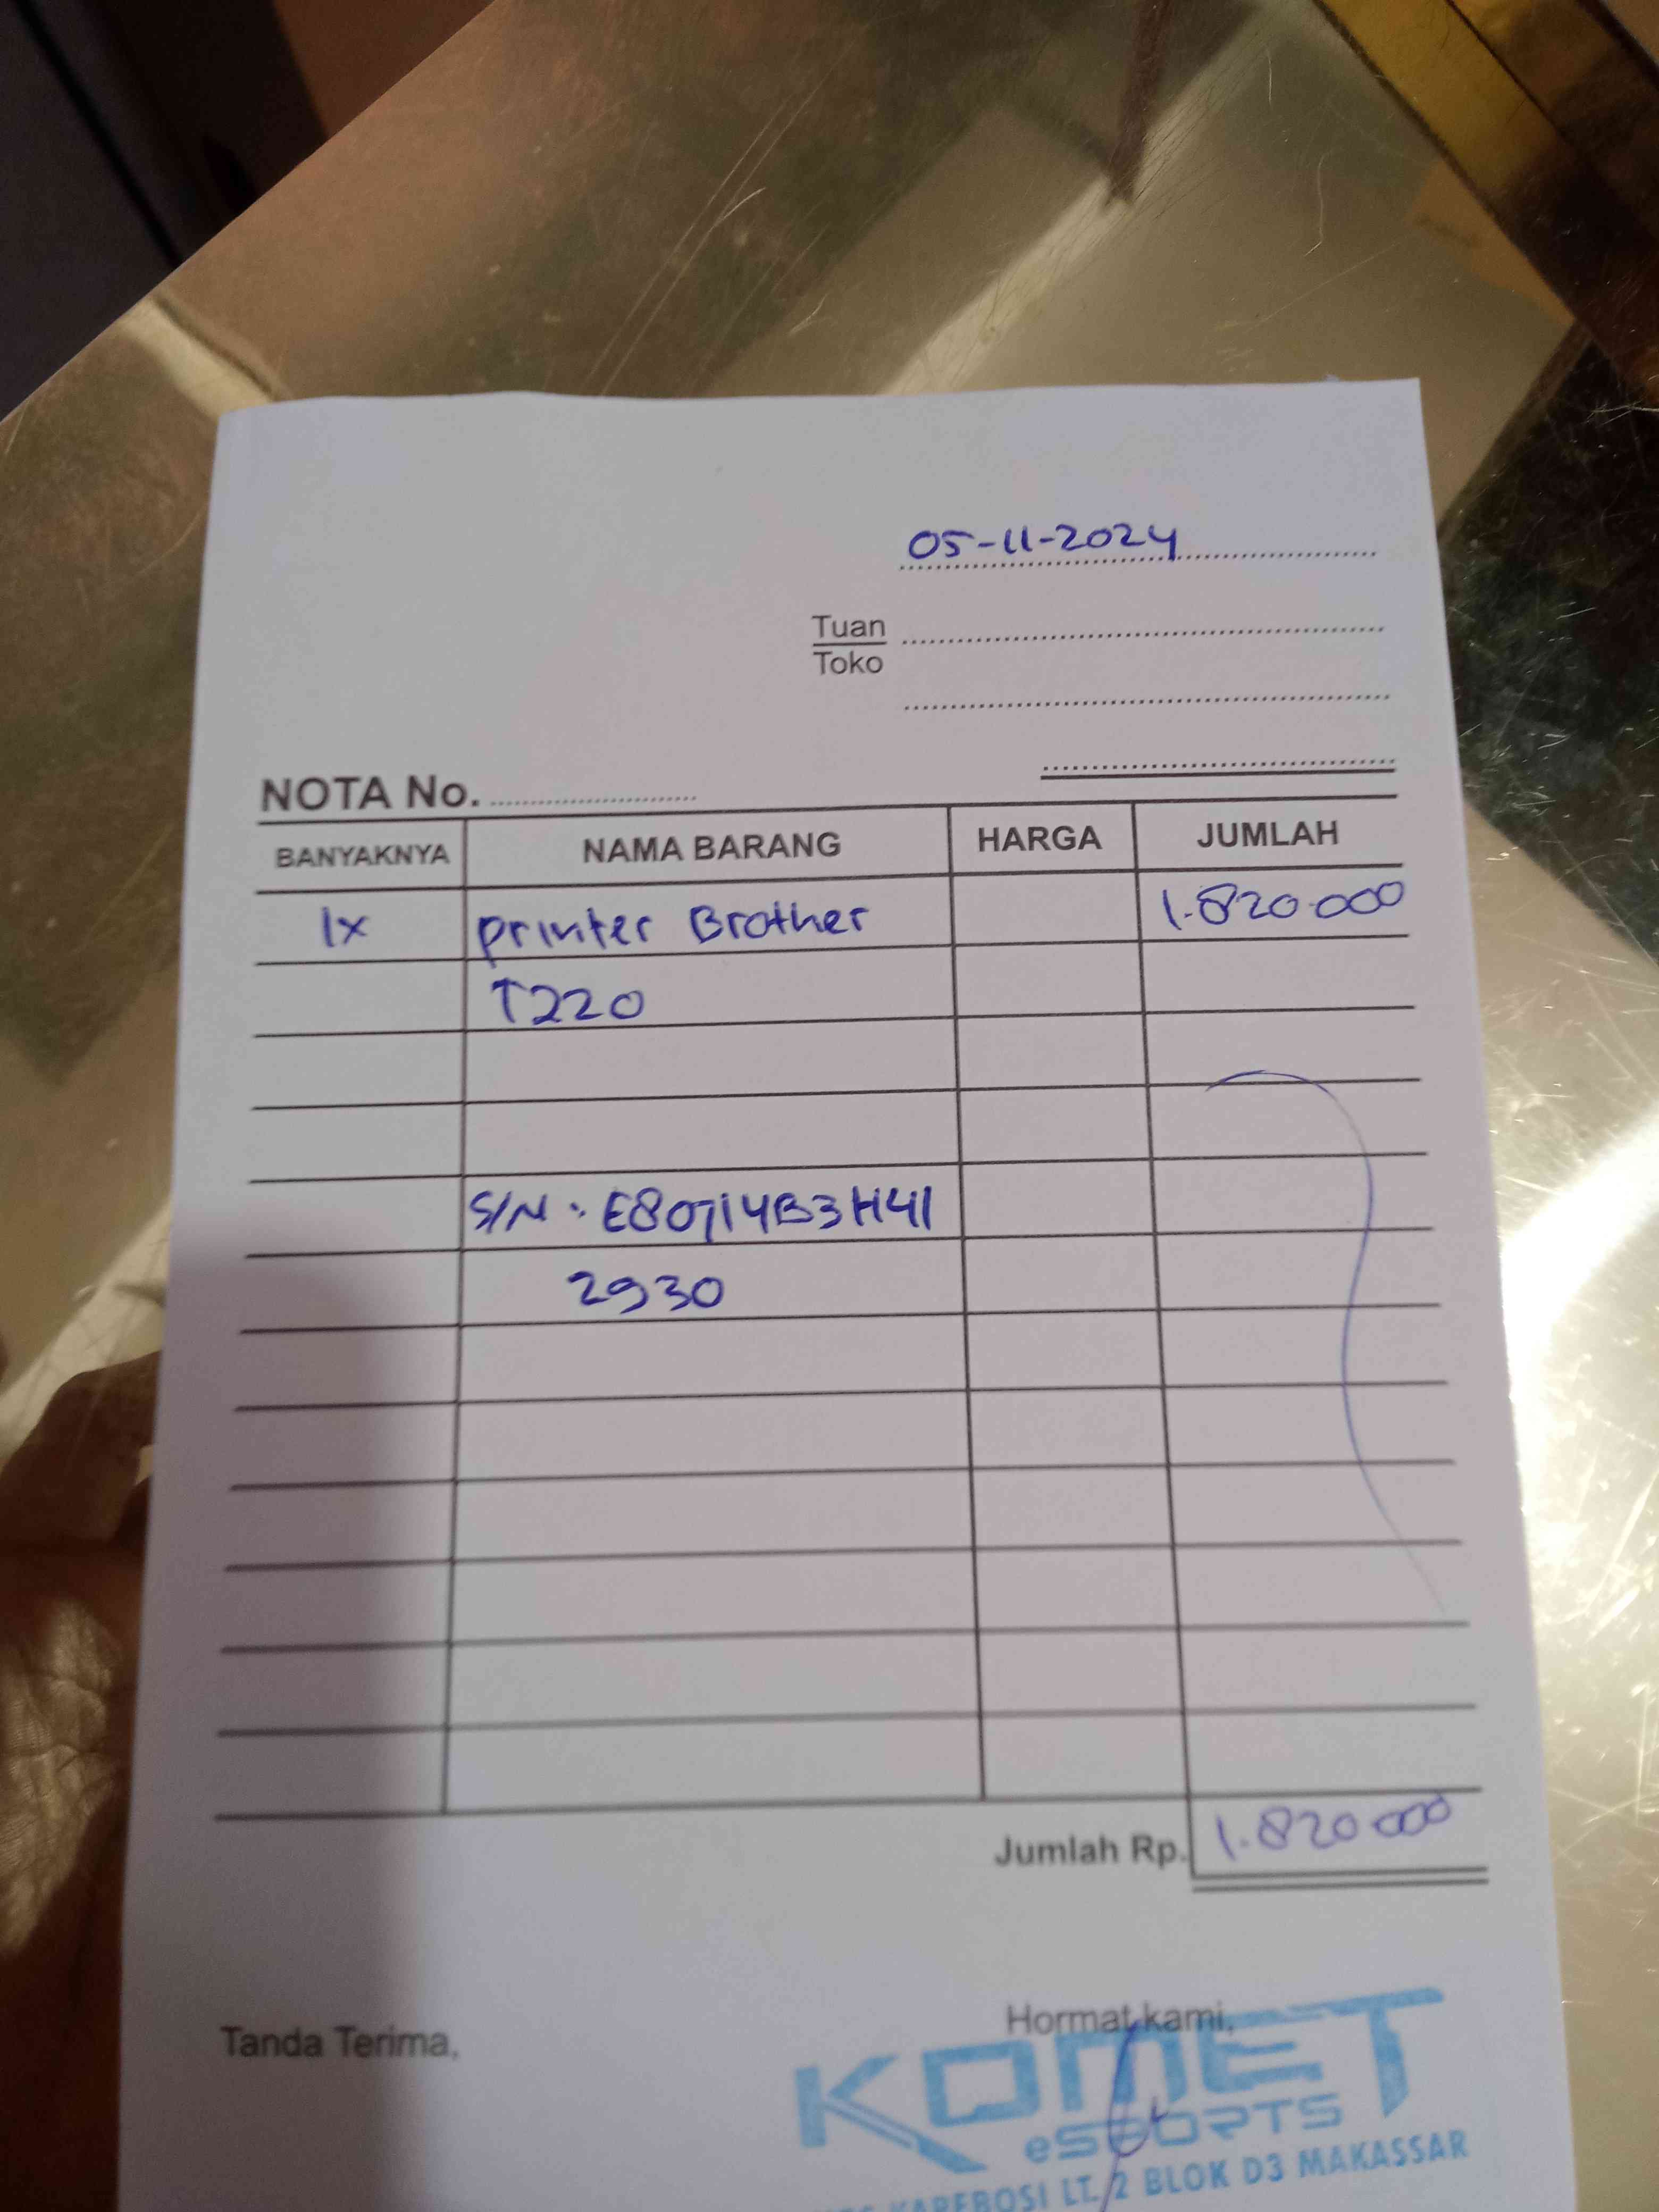 05-11-2024
Tuan
Toko
NOTA No.
BANYAKNYA NAMA BARANG HARGA JUMLAH
1x printer Brother 1.820.000
T220
S/N : E80714B3H41
2930
Jumlah Rp. 1.820.000
Tanda Terima, Hormat kami,
KOMET
eSPORTS
KAREBOSI LT. 2 BLOK D3 MAKASSAR